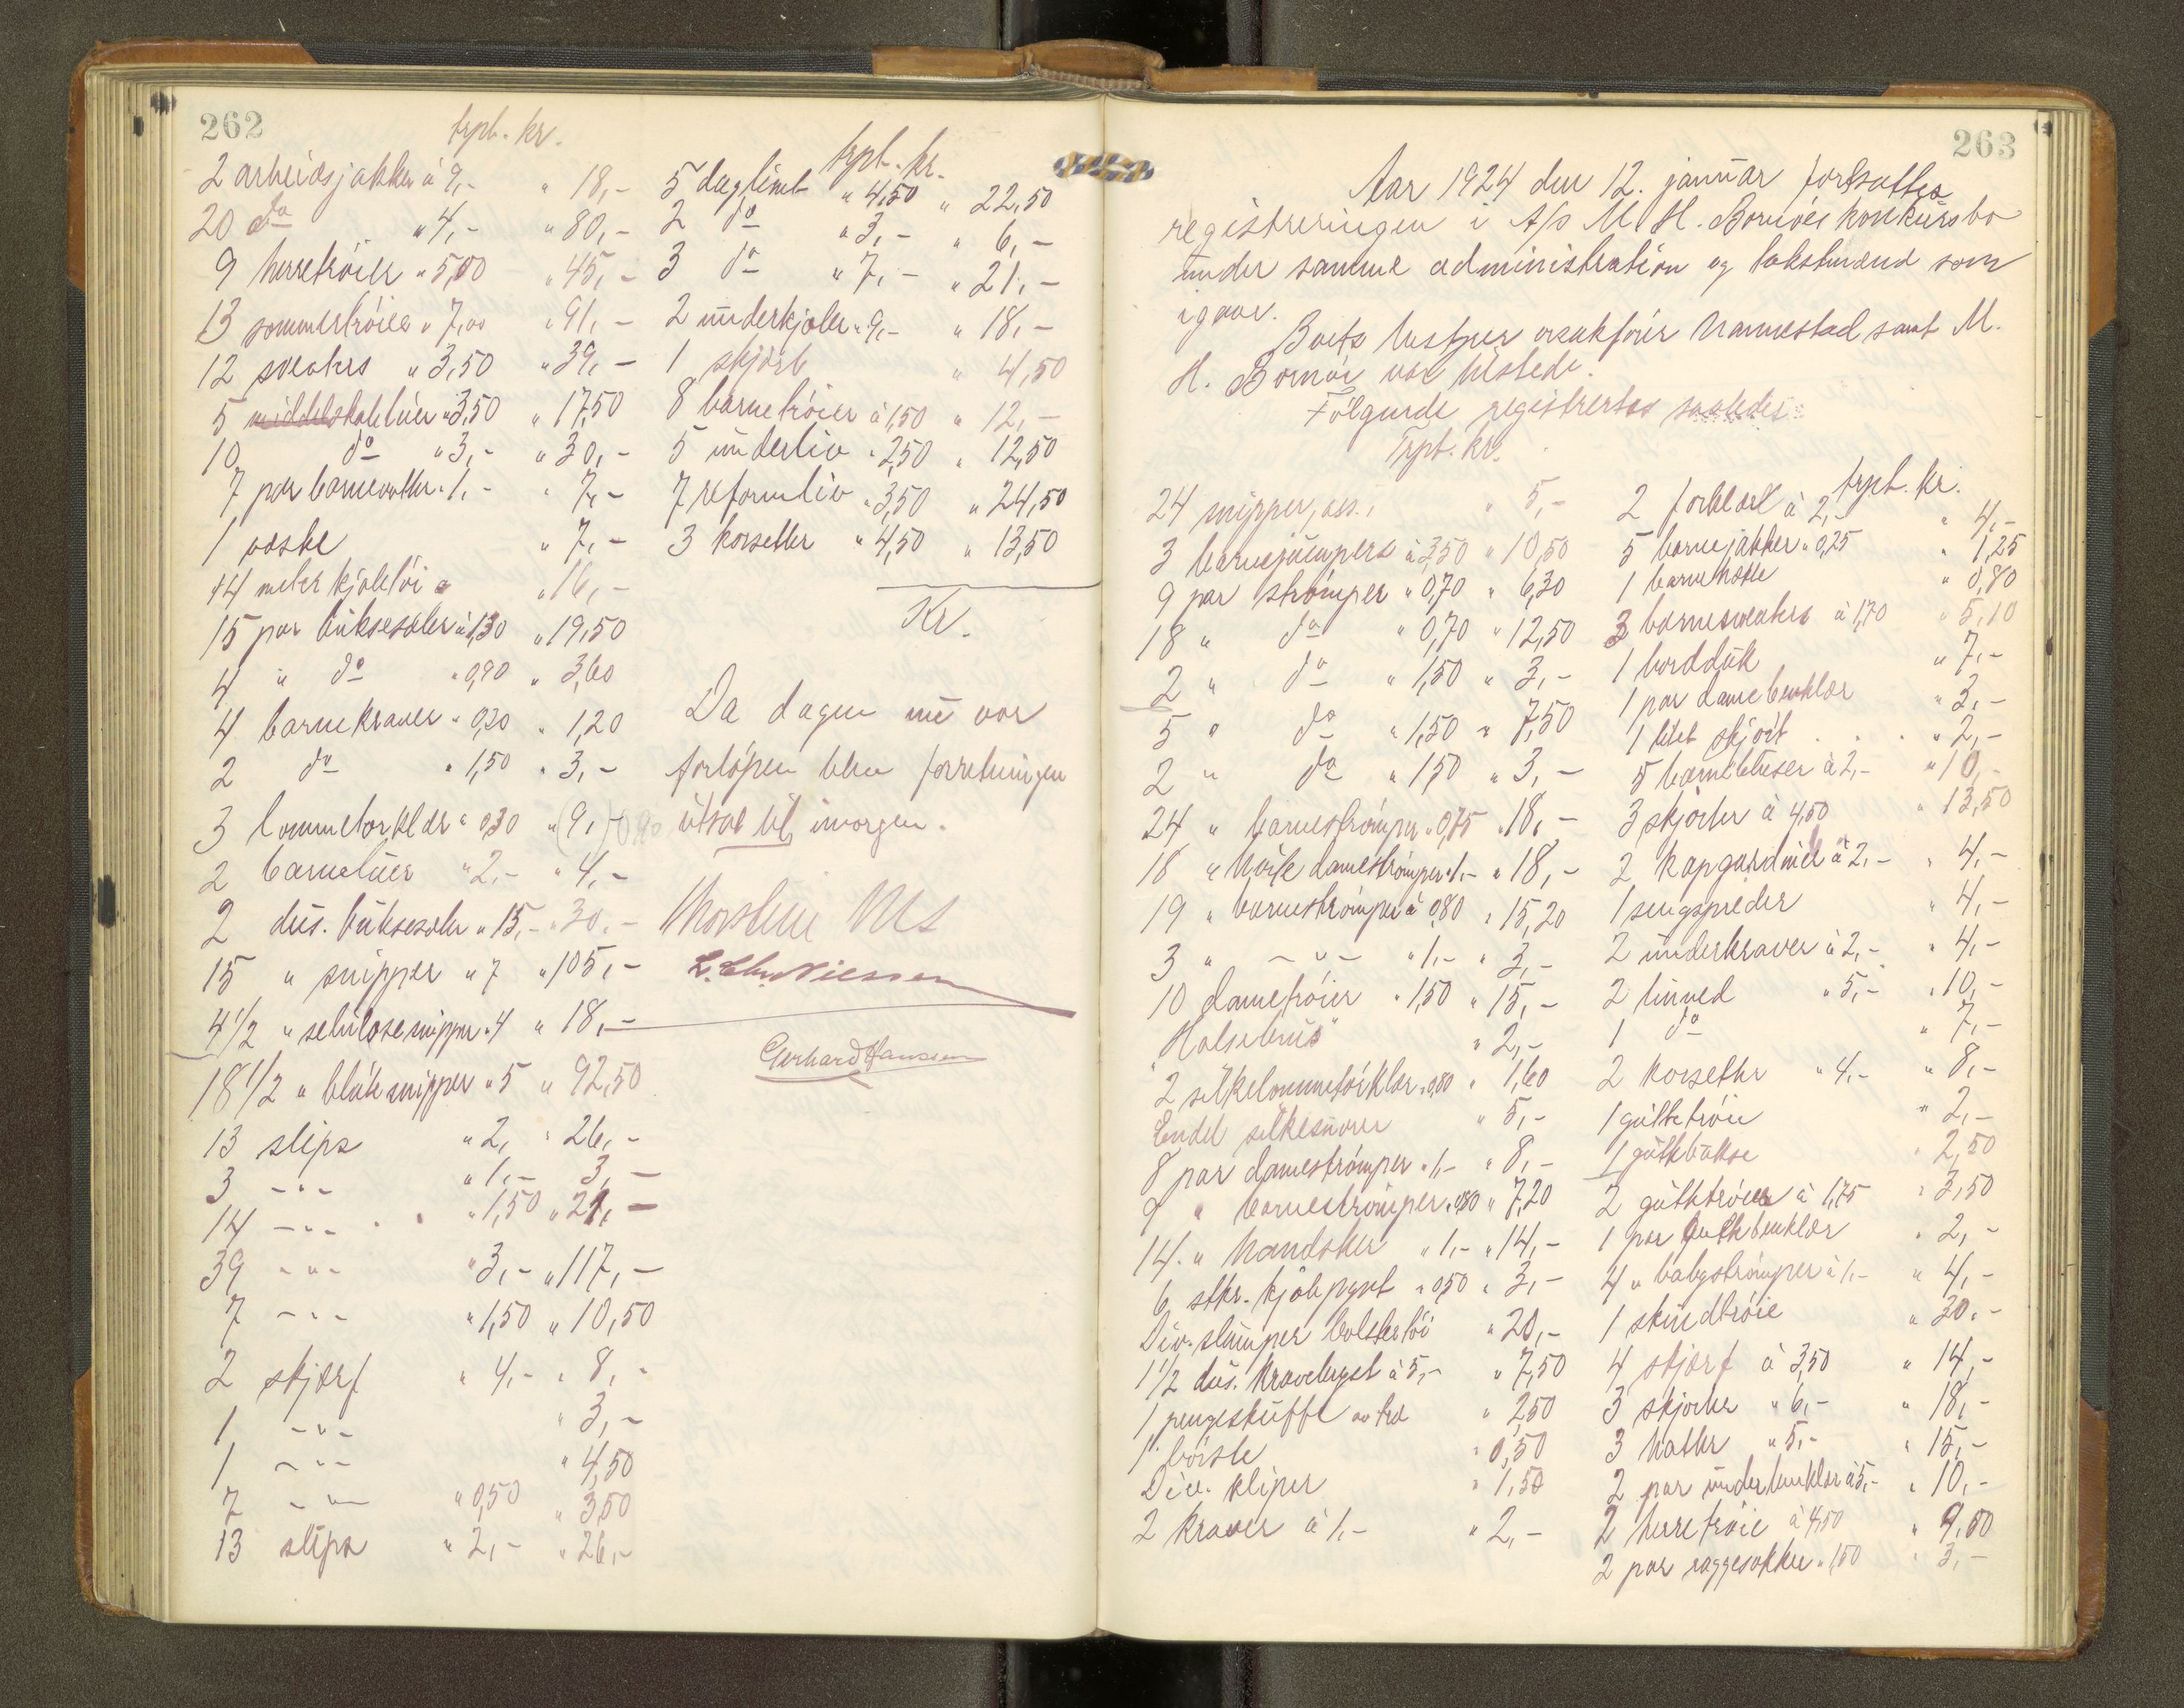 262
trpt. kr.
2 arbeidsjakker à 9,- " 18,-
20 do " 4,- " 80,-
9 herretröier " 5,00 " 45,-
13 sommertröier " 7,00 " 91,-
12 sveaters " 3,50 " 39,-
5 skateluer " 3,50 " 17,50
10 do " 3,- " 30,-
7 par barnevotter " 1,- " 7,-
1 væske " 7,-
14 meter kjoletöi " 16,-
15 par buksesæler à 1,30 " 19,50
4 " do " 0,90 " 3,60
4 barnekraver " 0,30 " 1,20
2 do " 1,50 " 3,-
3 lommetørklær " 0,30 " (9,-) 0,90
2 barneluer " 2,- " 4,-
2 dus. buksesæler " 15,- " 30,-
15 " snipper " 7 " 105,-
4 1/2 " selulosesnipper " 4 " 18,-
18 1/2 " bløte snipper " 5 " 92,50
13 slips " 2, " 26,-
3 -"- " 1,- 3,-
14 -"- " 1,50 " 21,-
39 -"- " 3,- " 117,-
7 -"- " 1,50 " 10,50
2 skjærf " 4,- " 8,-
1 -"- " 3,-
1 -"- " 4,50
7 -"- " 0,50 " 3,50
13 slips " 2,- " 26,-
trpt. kr.
5 daglinet " 4,50 " 22,50
2 do " 3,- " 6,-
3 do " 7,- " 21,-
2 underkjoler " 9,- " 18,-
1 skjört " 4,50
8 barnetröier à 1,50 " 12,-
5 underliv " 2,50 " 12,50
7 reformliv " 3,50 " 24,50
3 korsetter " 4,50 " 13,50
Kr.
Da dagen nu var
forlöpen blev forretningen
utsat til imorgen.
L. Chr. Nielsen
Gerhard Hansen
263
Aar 1924 den 12. januar fortsattes
registreringen i A/s M. H. Bornöes konkursbo
under samme administration og takstmænd som
igaar.
Boets bestyrer saksförer Nannestad samt M.
H. Bornöe var tilstede.
Fölgende registrertes saaledes:
Trpt. kr.
24 snipper, ass., " 5,-
3 barnejumpers à 3,50 " 10,50
9 par strömper " 0,70 " 6,30
18 " do " 0,70 " 12,50
2 " do " 1,50 " 3,-
5 " do " 1,50 " 7,50
2 " do " 1,50 " 3,-
24 " barneströmper " 0,75 " 18,-
18 " hvite dameströmper " 1,- " 18,-
19 " barneströmper à 0,80 " 15,20
3 " -"- " 1,- " 3,-
10 dametröier " 1,50 " 15,-
"Halsebrus" " 2,-
2 silkelommetörklær " 0,80 " 1,60
Endel silkesnorer " 5,-
8 par dameströmper " 1,- " 8,-
9 " barneströmper " 0,80 " 7,20
14 " handsker " 1,- " 14,-
6 stkr. kjolepynt " 0,50 " 3,-
Div. slumper bolstertöi " 20,-
1 1/2 dus. kravetyget à 5,- " 7,50
1 pengeskuffe av træ " 2,50
1 börste " 0,50
Div. kliper " 1,50
2 kraver à 1,- " 2,-
trpt. kr.
2 forklær à 2,- " 4,-
5 barnejakker " 0,25 " 1,25
1 barnehætte " 0,80
3 barnesveaters à 1,70 " 5,10
1 bordduk " 7,-
1 par damebenklær " 3,-
1 litet skjört . . . " 2,-
5 barnebluser à 2,- " 10,-
3 skjorter à 4,50 " 13,50
2 kapgardiner à 2,- " 4,-
1 sengspreder " 4,-
2 underkraver à 2,- " 4,-
2 linned " 5,- " 10,-
1 do " 7,-
2 korsetter " 4,- " 8,-
1 guttetröie " 2,-
1 guttebukse " 2,50
2 guttetröier à 1,75 " 3,50
1 par guttebenklær " 2,-
4 " babyströmper à 1,- " 4,-
1 skindtröie " 30,-
4 skjærf à 3,50 " 14,-
3 skjorter " 6,- " 18,-
3 hatter " 5,- " 15,-
2 par underbenklær à 5,- " 10,-
2 herretröie à 4,50 " 9,00
2 par raggesokker " 1,50 " 3,-